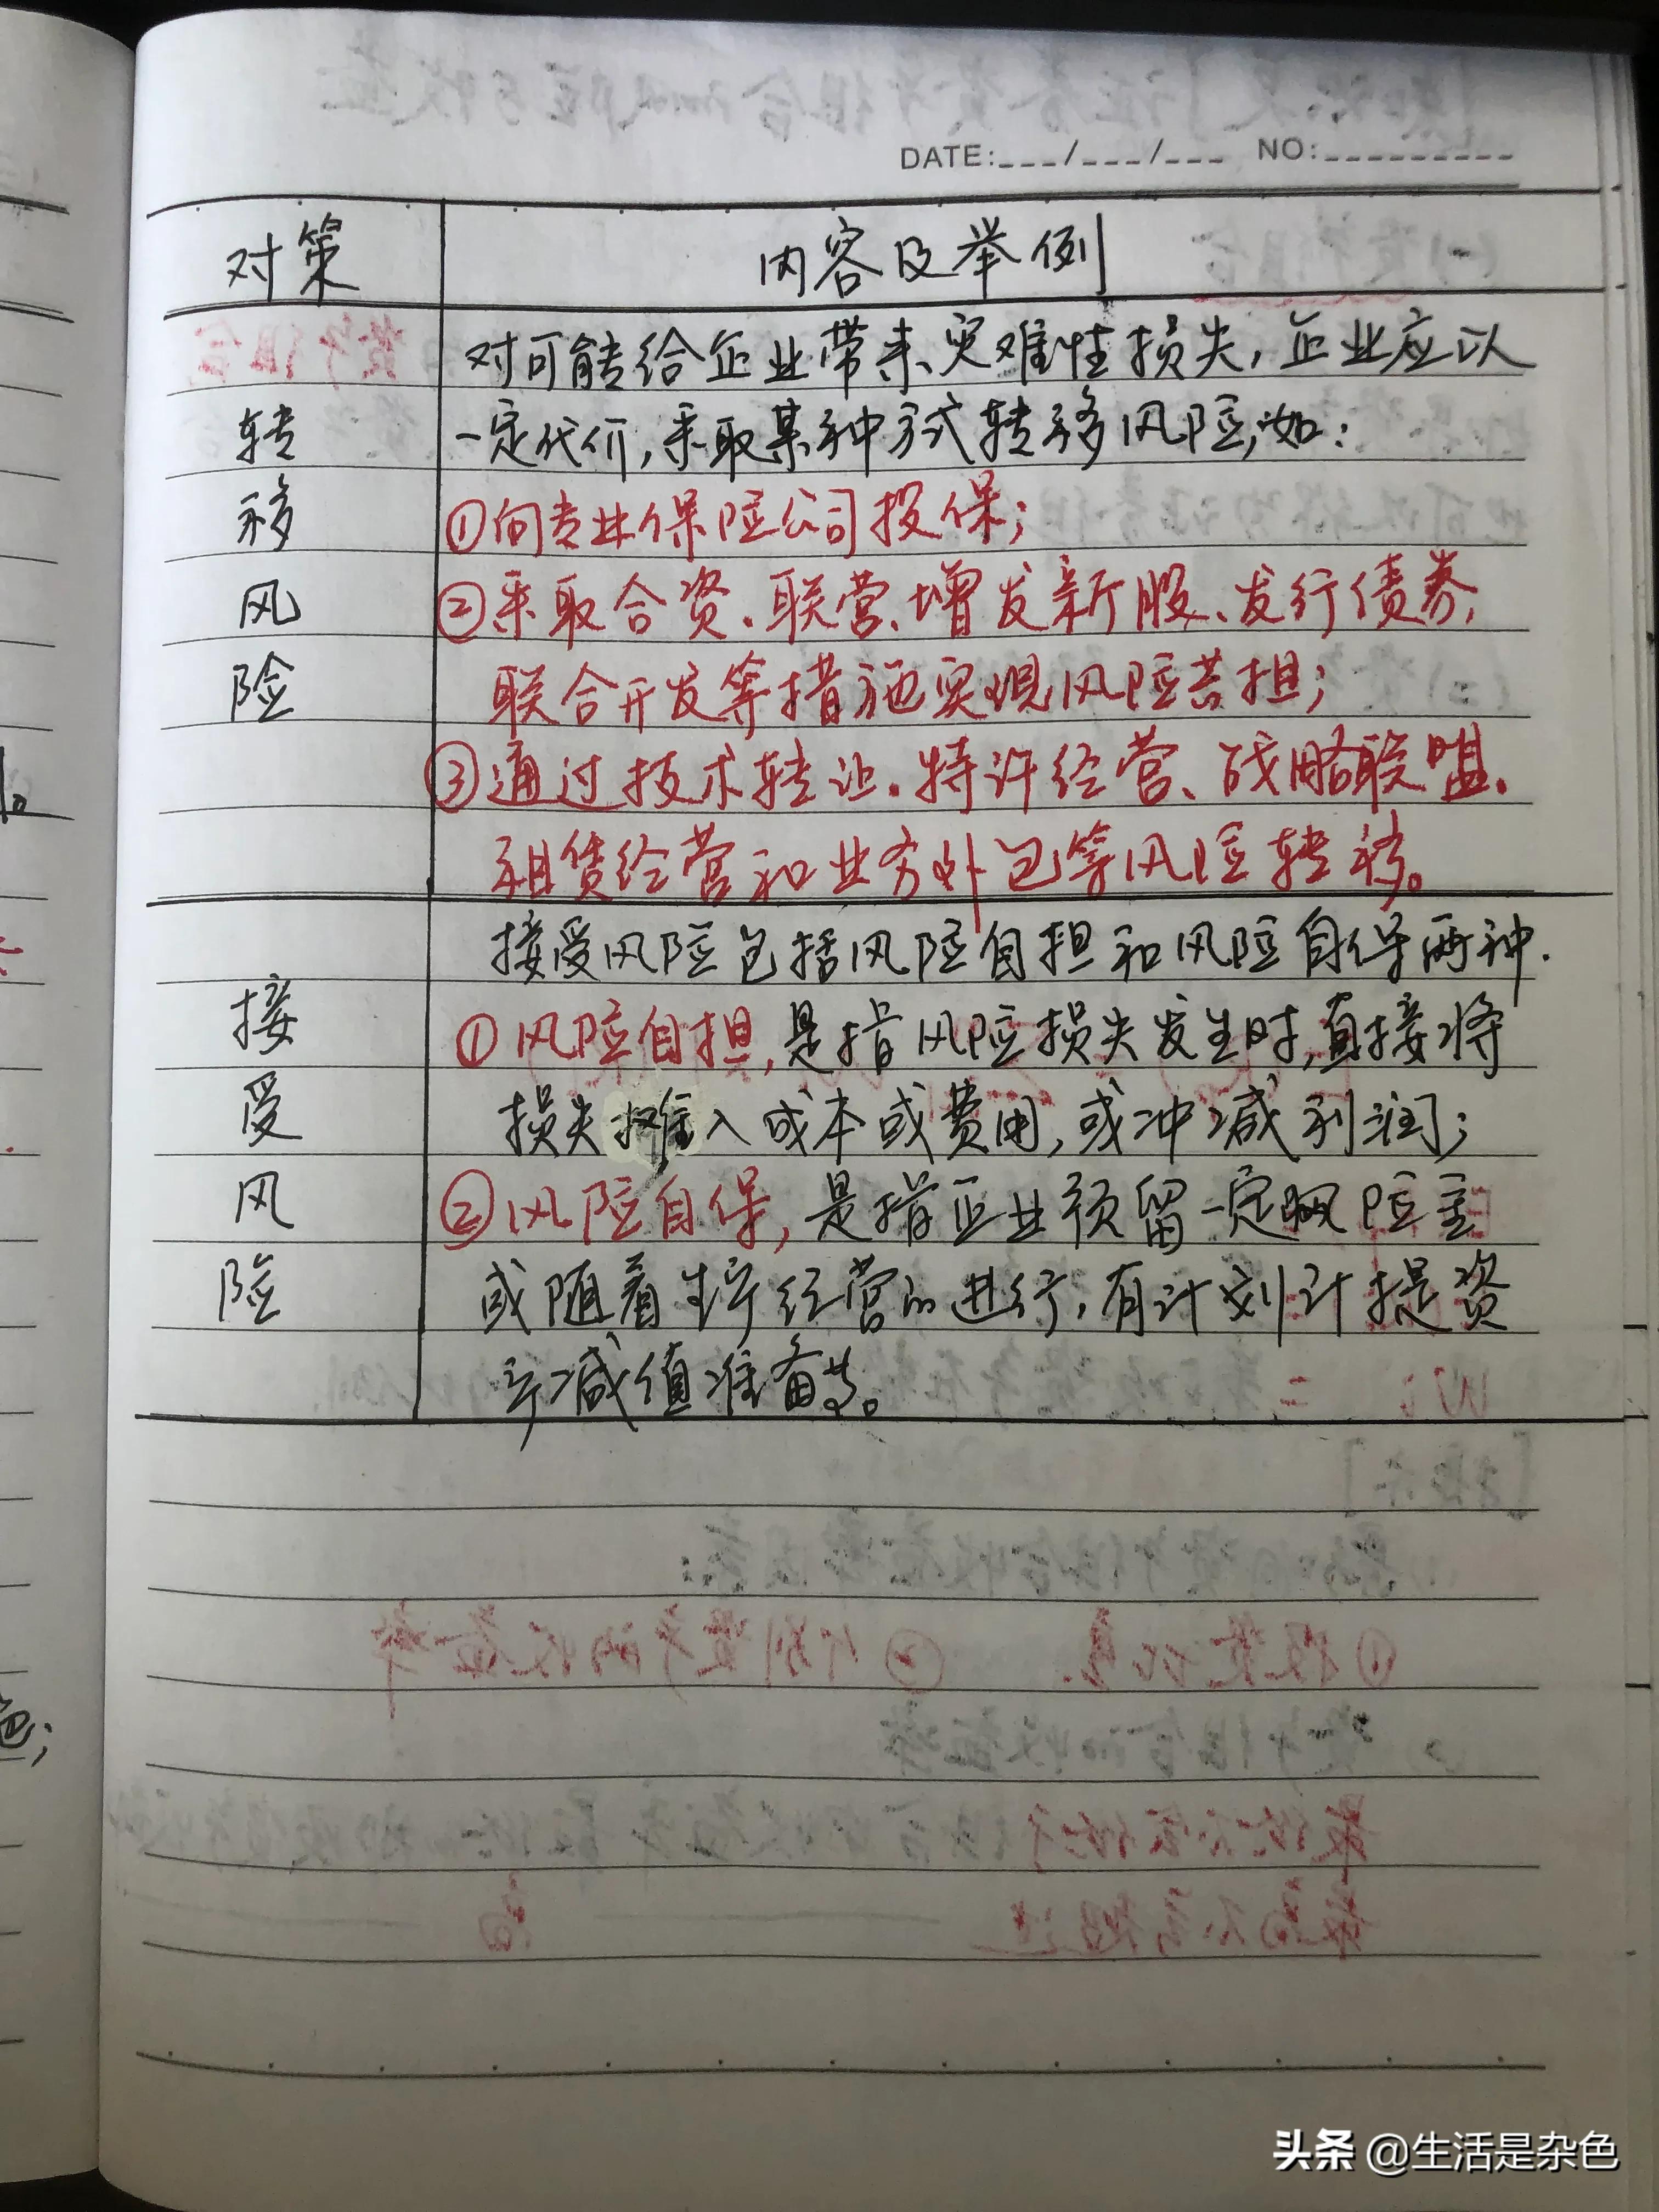 DATE:___/___/___ NO:_________
对策 内容及举例
转移风险
对可能给企业带来灾难性损失，企业应以
一定代价，采取某种方式转移风险，如：
①向专业保险公司投保；
②采取合资、联营、增发新股、发行债券、
联合开发等措施实现风险共担；
③通过技术转让、特许经营、战略联盟、
租赁经营和业务外包等风险转移。
接受风险
接受风险包括风险自担和风险自保两种.
①风险自担，是指风险损失发生时，直接将
损失摊入成本或费用，或冲减利润；
②风险自保，是指企业预留一定风险金
或随着生产经营的进行，有计划计提资
产减值准备等。
头条 @生活是杂色